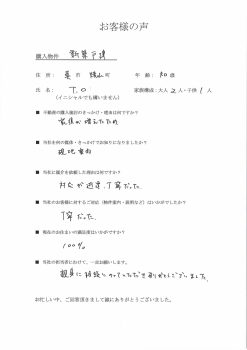 お客様の声
購入物件 新築戸建
住所：呉市 焼山町 年齢：30歳
氏名：T.O 家族構成：大人2人・子供1人
（イニシャルでも構いません）
■ 不動産の購入検討のきっかけ・理由は何ですか？
家族が増えたため
■ 当社を何の媒体・きっかけでお知りになりましたか？
現地案内
■ 当社に媒介を依頼した理由は何ですか？
対応が迅速、丁寧だった。
■ 当社のお客様に対するご対応（物件案内・説明など）はいかがでしたか？
丁寧だった。
■ 現在のお住まいの満足度はいかがですか？
100%
■ 当社の担当者にむけて、一言お願いします。
親身に相談にのっていただきありがとうございました。
お忙しい中、ご回答頂きまして誠にありがとうございました。